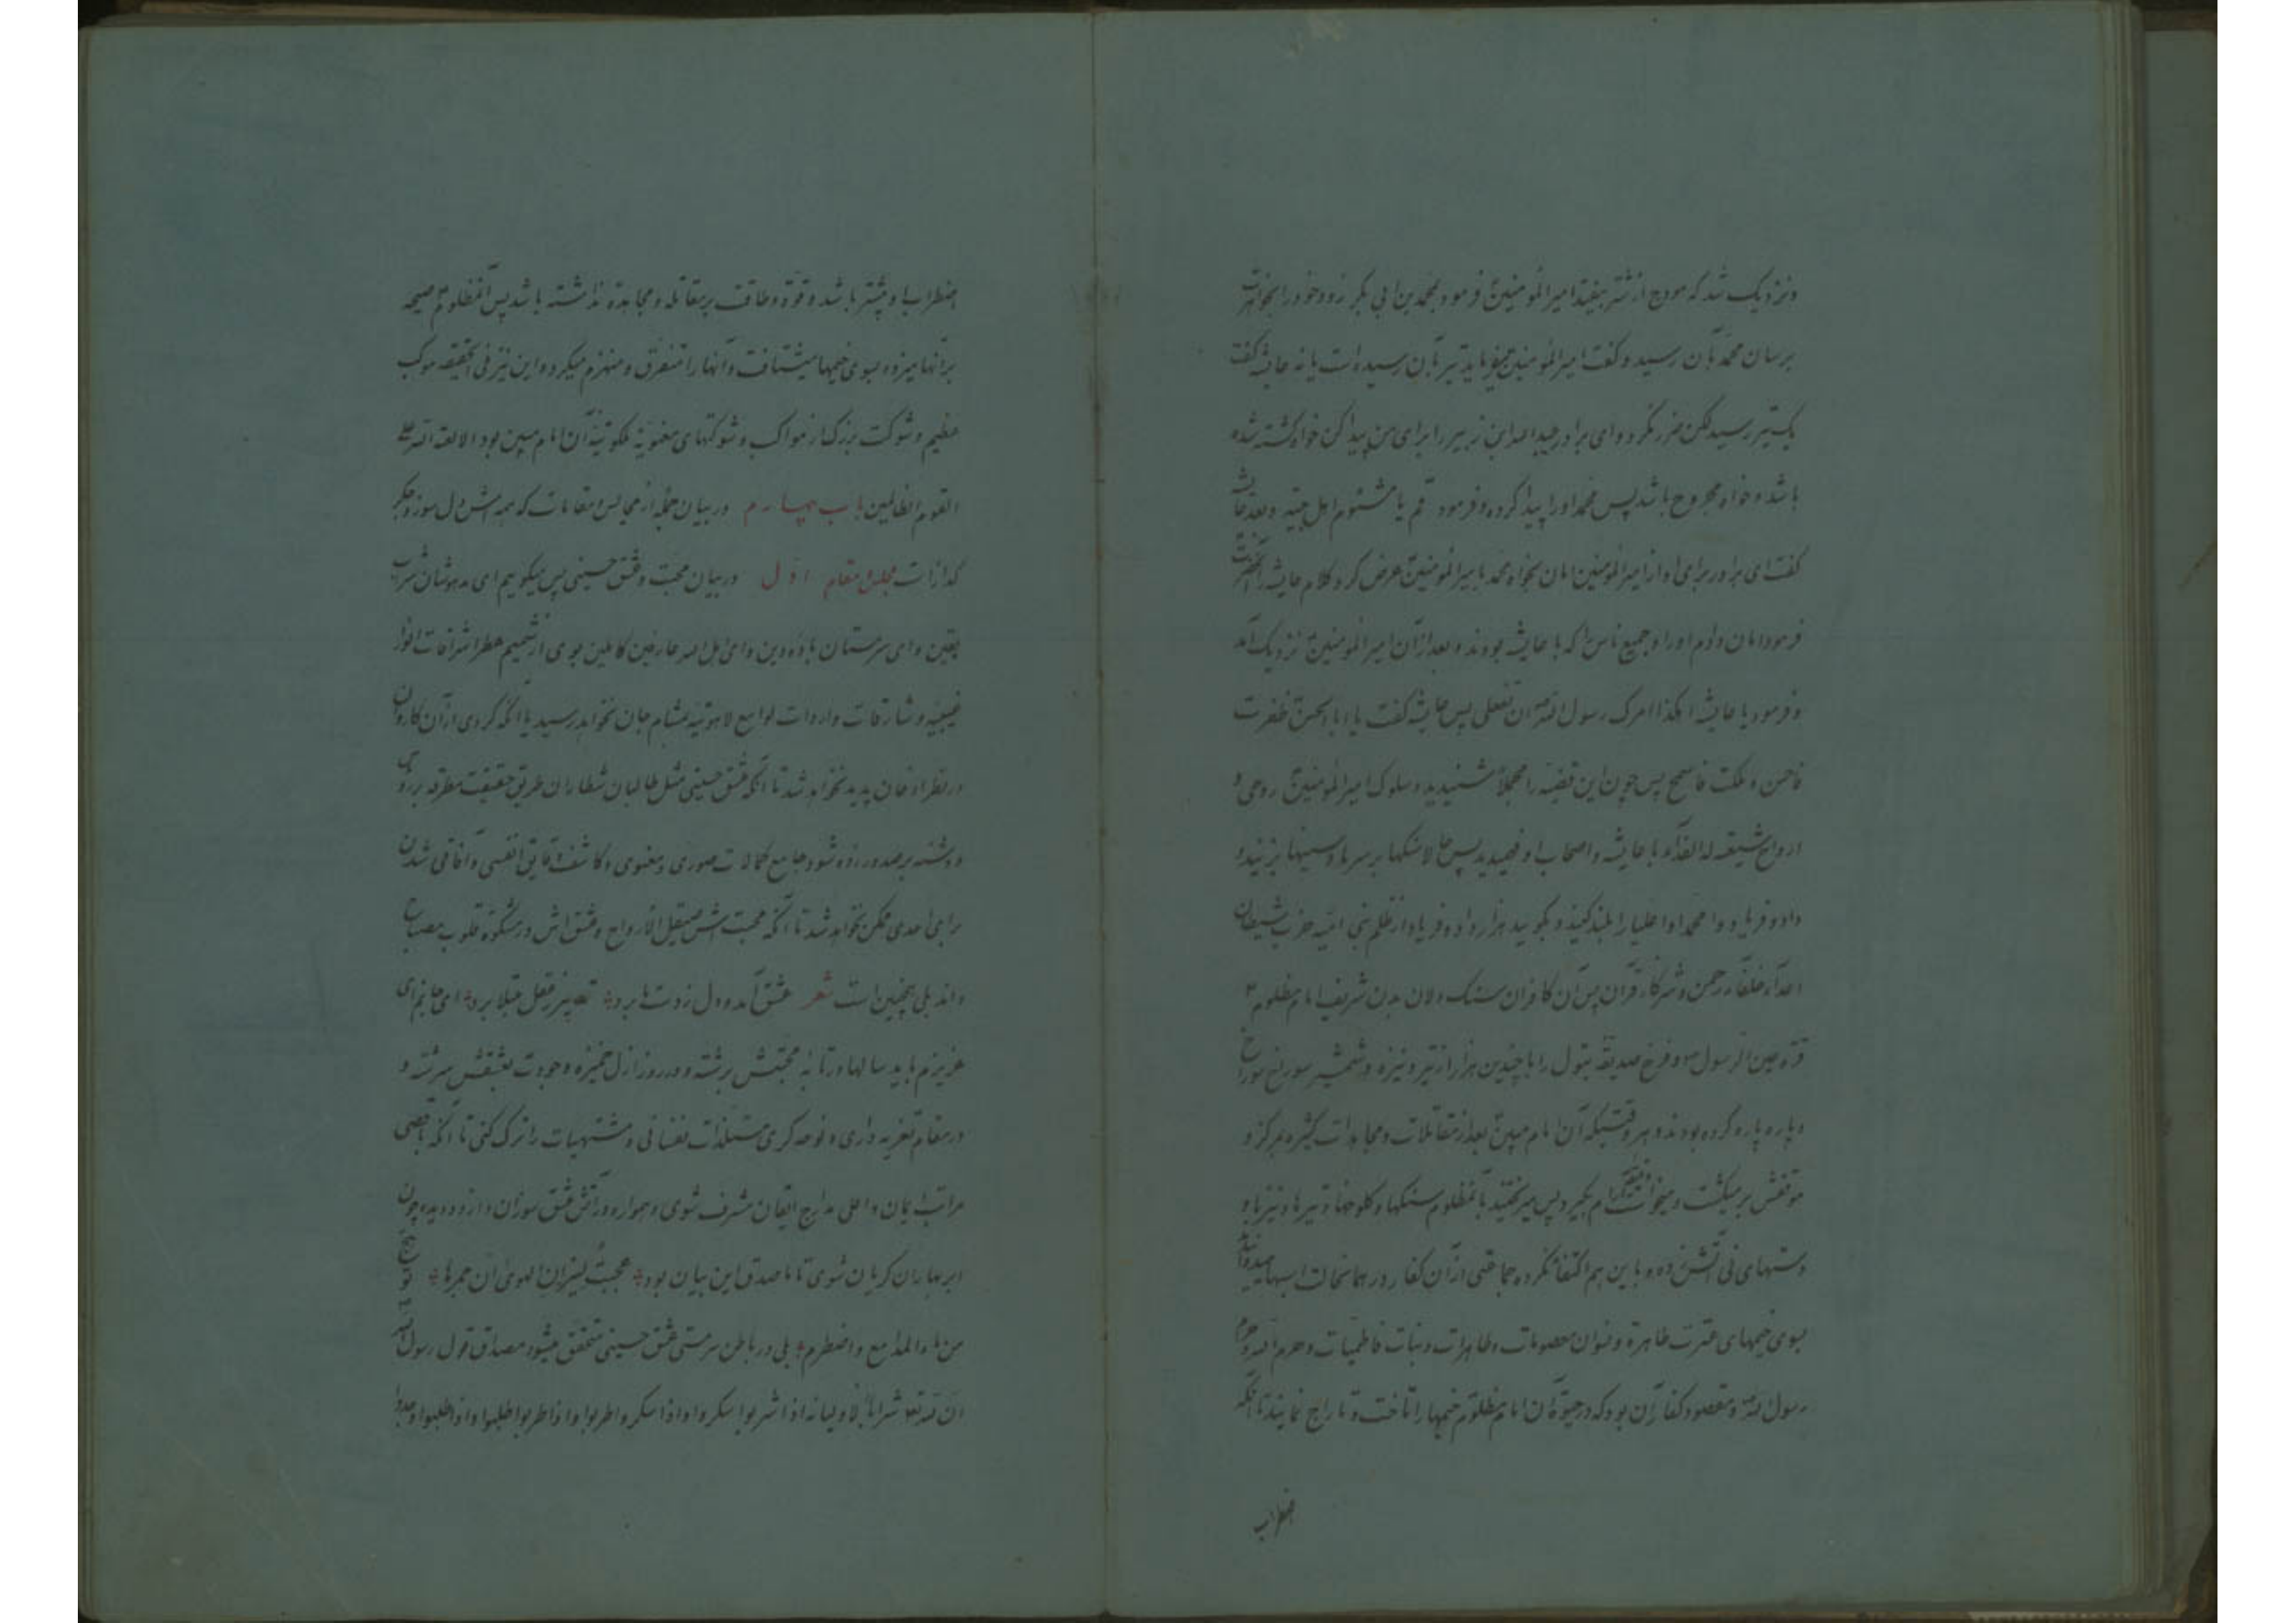 ونزدیک شد که هودج از شتر بیفتد امیرالمومنین فرمود بمحمد بن ابی بکر زود خود را بخواهرت
برسان محمد بآن رسید و گفت امیرالمومنین میفرماید تیر بآن رسیده است یا نه عایشه گفت
یک تیر رسید لکن ضرر نکرد و ای برادر عبداله ابن زبیر را برای من پیدا کن خواه کشته شده
باشد و خواه مجروح باشد پس محمد او را پیدا کرده و فرمود قم یا مشئوم اهل بیته و بعد عایشه
گفت ای برادر برای او از امیرالمومنین امان بخواه محمد بامیرالمومنین عرض کرد کلام عایشه را آنحضرت
فرمود امان دادم او را و جمیع ناس را که با عایشه بودند و بعد از آن امیرالمومنین نزدیک آمد
و فرمود یا عایشه اهکذا امرک رسول الله ان تفعلی پس عایشه گفت یا ابا الحسن ظفرت
فاحسن و ملکت فاسجح پس چون این قضیه را مجملا شنیدید و سلوک امیرالمومنین روحی و
ارواح شیعته له الفداء با عایشه و اصحاب او فهمیدید پس حالا سنگها بر سرها و سینها بزنید و
داد و فریاد و وا محمدا وا علیا را بلند کنید و بگویید هزار داد و فریاد از ظلم بنی امیه حزب شیطان
اعداء خلفاء رحمن و شرکاء قرآن پس آن کافران سنگ دلان بدن شریف امام مظلوم
قرة عین الرسول و فرخ صدیقه بتول را با چندین هزار از تیر و نیزه و شمشیر سوراخ سوراخ
و پاره پاره کرده بودند و هر وقتیکه آن امام مبین بعد از مقاتلات و مجاهدات کثیره بمرکز و
موقفش برمیگشت و میخواست آرام بگیرد پس میریختند بآنمظلوم سنگها و کلوخها و تیرها و نیزها و
دستهای نی آتش زده و باین هم اکتفا نکرده جماعتی از آن کفار در همانحالت اسبها میدوانیدند
بسوی خیمهای عترت طاهره و نسوان معصومات و طاهرات و بنات فاطمیات و حرم الله و حرم
رسول الله و مقصود کفار آن بود که در حیوة آن امام مظلوم خیمها را تاخت و تاراج نمایند تا آنکه
اضطراب
اضطراب او بیشتر باشد و قوة و طاقت بر مقاتله و مجاهدة نداشته باشد پس آنمظلوم صیحه
بر آنها میزد و بسوی خیمها میشتافت و آنها را متفرق و منهزم میکرد و این نیز فی الحقیقه موکب
عظیم و شوکت بزرگ از مواکب و شوکتهای معنویه ملکوتیه آن امام مبین بود الا لعنة الله علی
القوم الظالمین باب چهارم در بیان جمله از مجالس و مقامات که همه اش دل سوز و جگر
گداز است مجلس و مقام اول در بیان محبت و عشق حسینی پس میگوییم ای مدهوشان شراب
یقین و ای سرمستان بادهٔ دین و ای اهل الله عارفین کاملین بوی از شمیم عطر اشراقات انوار
غیبیه و شارقات واردات لوامع لاهوتیه بمشام جان نخواهد رسید یا آنکه گردی از آن کاروان
در نظر اذعان پدید نخواهد شد تا آنکه عشق حسینی مثل طالبان شطاران طریق حقیقت مطرقه بر روی
و دشنه بر صدور زده شود جامع کمالات صوری و معنوی و کاشف دقایق انفسی و آفاقی شدن
برای احدی ممکن نخواهد شد تا آنکه محبتش صیقل الارواح و عشق اش در مشکوة قلوب مصباح
داند بلی همچنین است شعر عشق آمد و دل ز دست ما برد تدبیر ز عقل مبتلا برد ای جانم ای
عزیزم باید سالها در تابه محبتش برشته و در روز ازل خمیرهٔ وجودت بعشقش سرشته و
در مقام تعزیه داری و نوحه گری مستلذات نفسانی و مشتهیات را ترک کنی تا آنکه باقصی
مراتب ایمان و اعلی مدارج ایقان مشرف شوی و همواره در آتش عشق سوزان و از دو دیده چون
ابر بهاران گریان شوی تا ما صدق این بیان بود عجبت لنیران الهوی ان جمرها توجج
من ماء المدامع واضطرم بلی در باطن سرمستی عشق حسینی متحقق میشود مصداق قول رسول الله
ان لله تعالی شرابا لاولیائه اذا شربوا سکروا و اذا سکروا طربوا و اذا طربوا طلبوا و اذا طلبوا وجدوا